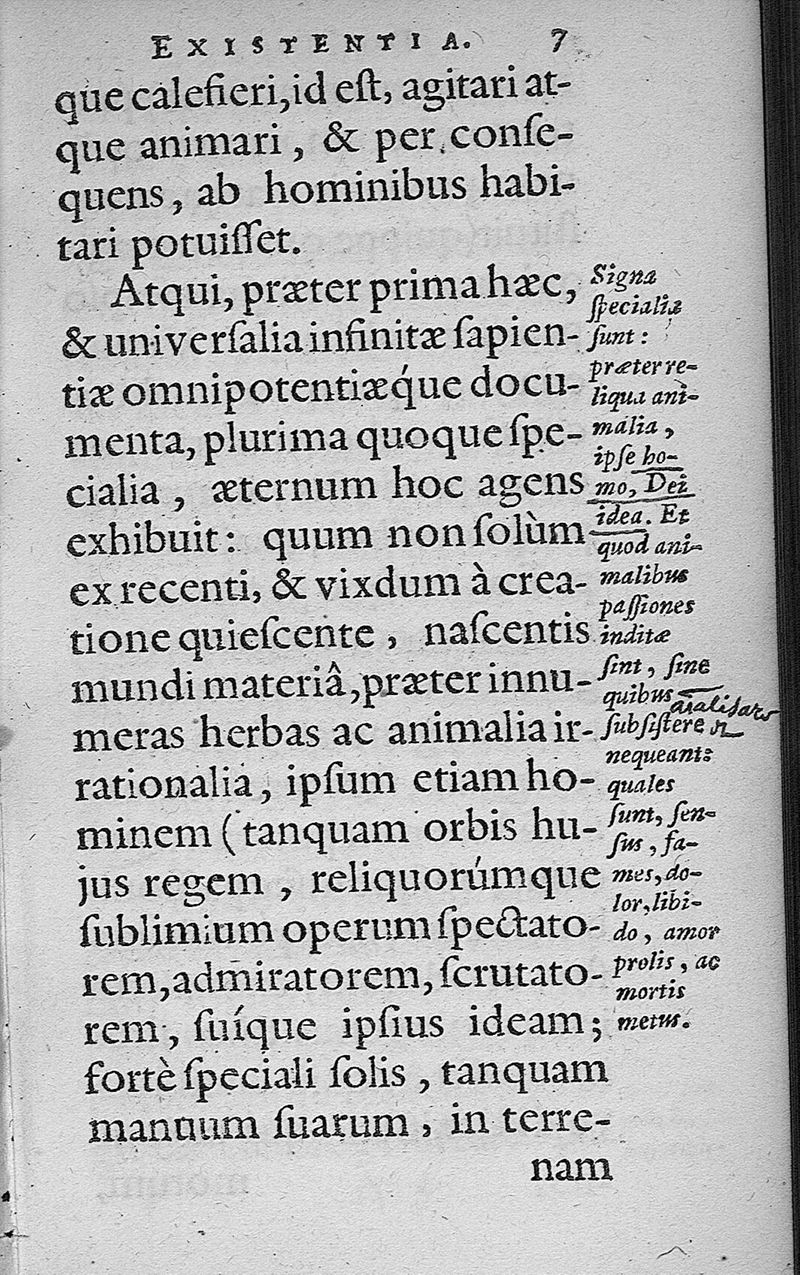 EXISTENTIA. 7
que calefieri, id eſt, agitari at-
que animari, & per conſe-
quens, ab hominibus habi-
tari potuiſſet.
Atqui, præter prima hæc,
& univerſalia infinitæ ſapien-
tiæ omnipotentiæq́ue docu-
menta, plurima quoque ſpe-
cialia, æternum hoc agens
exhibuit: quum non ſolùm
ex recenti, & vixdum à crea-
tione quieſcente, naſcentis
mundi materiâ, præter innu-
meras herbas ac animalia ir-
rationalia, ipſum etiam ho-
minem (tanquam orbis hu-
jus regem, reliquorúmque
ſublimium operum ſpectato-
rem, admiratorem, ſcrutato-
rem, ſuíque ipſius ideam;
fortè ſpeciali ſolis, tanquam
manuum ſuarum, in terre-
nam
Signa
ſpecialia
ſunt:
præter re-
liqua ani-
malia,
ipſe ho-
mo, Dei
idea. Et
quod ani-
malibus
paſſiones
inditæ
ſint, ſine
quibus
ſubſiſtere
nequeant:
quales
ſunt, ſen-
ſus, fa-
mes, do-
lor, libi-
do, amor
prolis, ac
mortis
metus.